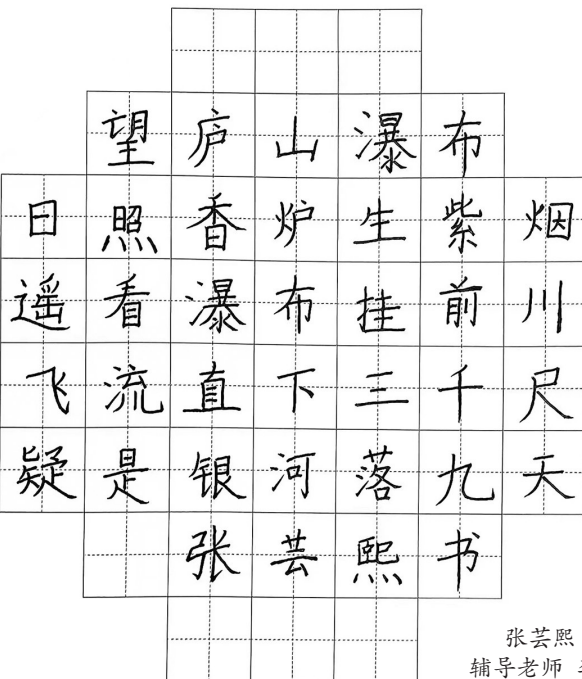 望庐山瀑布
日照香炉生紫烟
遥看瀑布挂前川
飞流直下三千尺
疑是银河落九天
张芸熙书
张芸熙
辅导老师